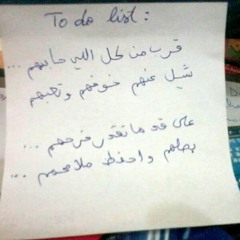 To do list:
قرب من كل اللي حابهم ...
شيل عنهم خوفهم وتعبهم
على قد ما تقدر فرحهم ...
بصلهم واحفظ ملامحهم ...